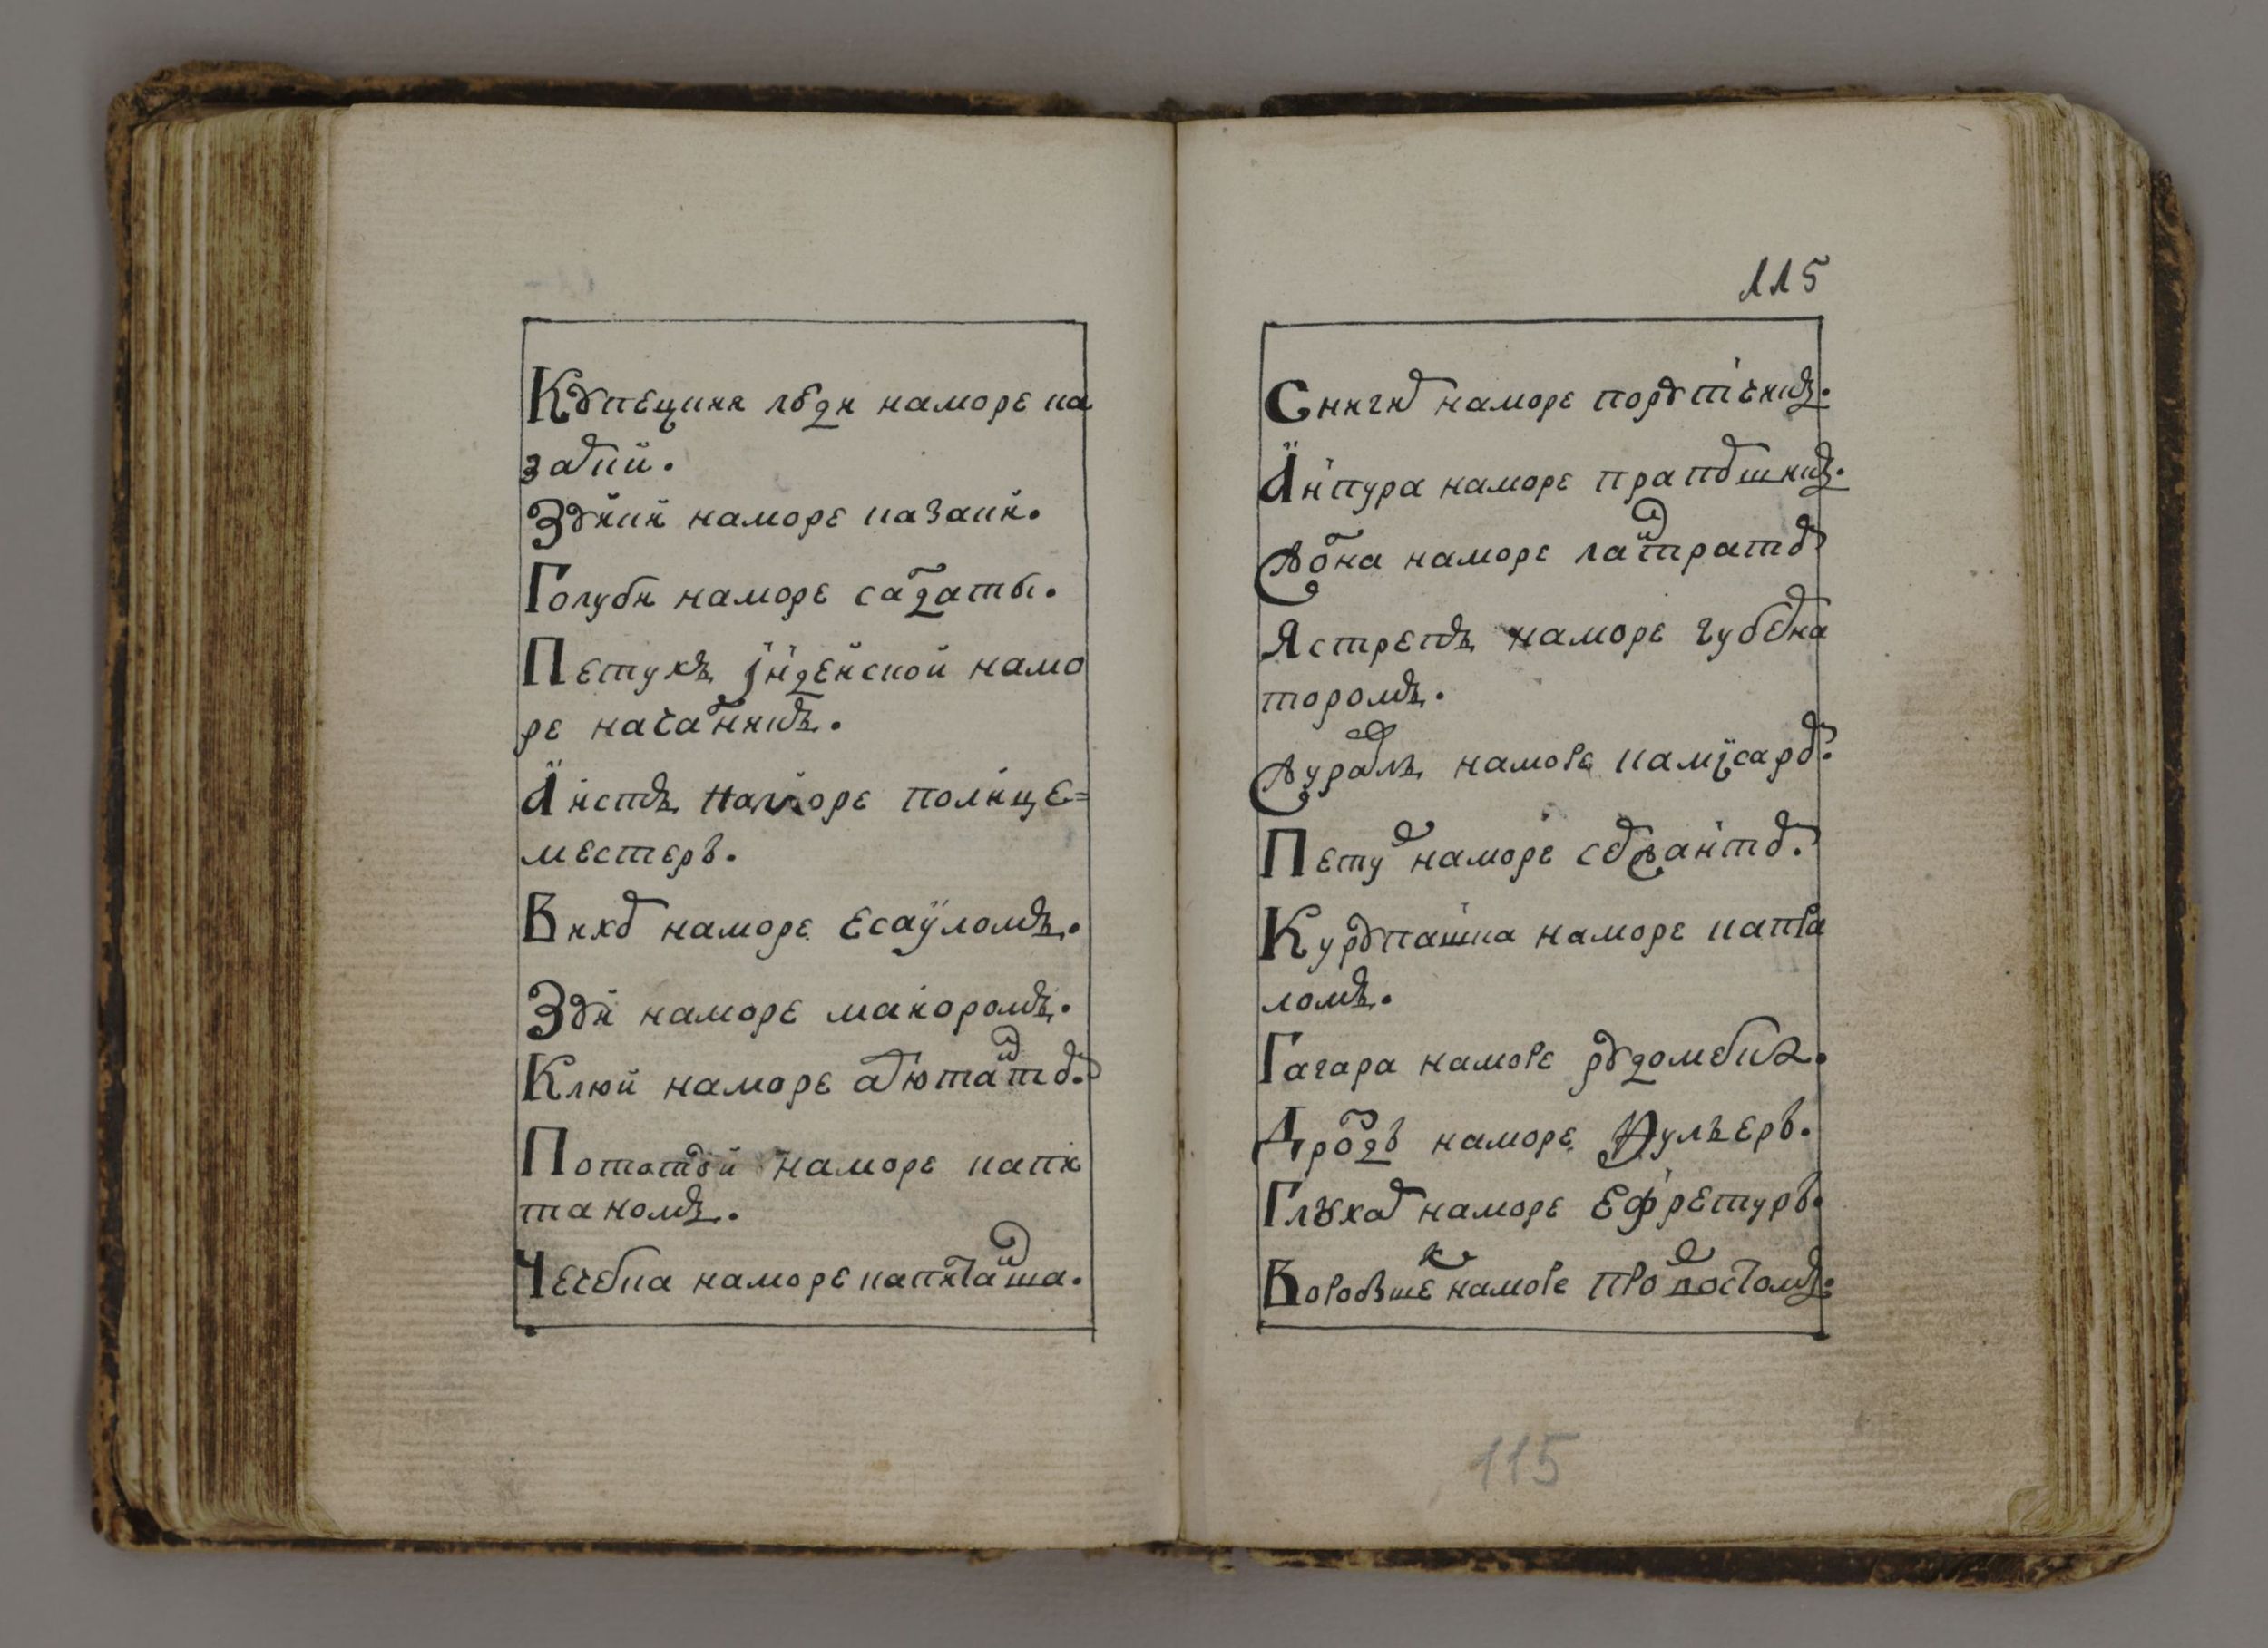 Купецкия люди наморе ка
заки.
Зуйки наморе казаки.
Голуби наморе салдаты.
Петухъ индейской намо
ре началникъ.
Аистъ наморе полице=
местеръ.
наморе есауломъ.
наморе маиоромъ.
наморе адютантъ.
наморе капи
таномъ.
Чечетка наморе капиташа.
115
Снигир наморе порутчикъ.
наморе прапоршикъ.
наморе
Ястрепъ наморе губерна
торомъ.
Журавль наморе камисаръ.
Петух наморе сержантъ.
Курупашка наморе капра
ломъ.
Гагара наморе
Дроздъ наморе курьеръ.
Глухарь наморе ефретуръ.
Воробушек наморе профостомъ.
115